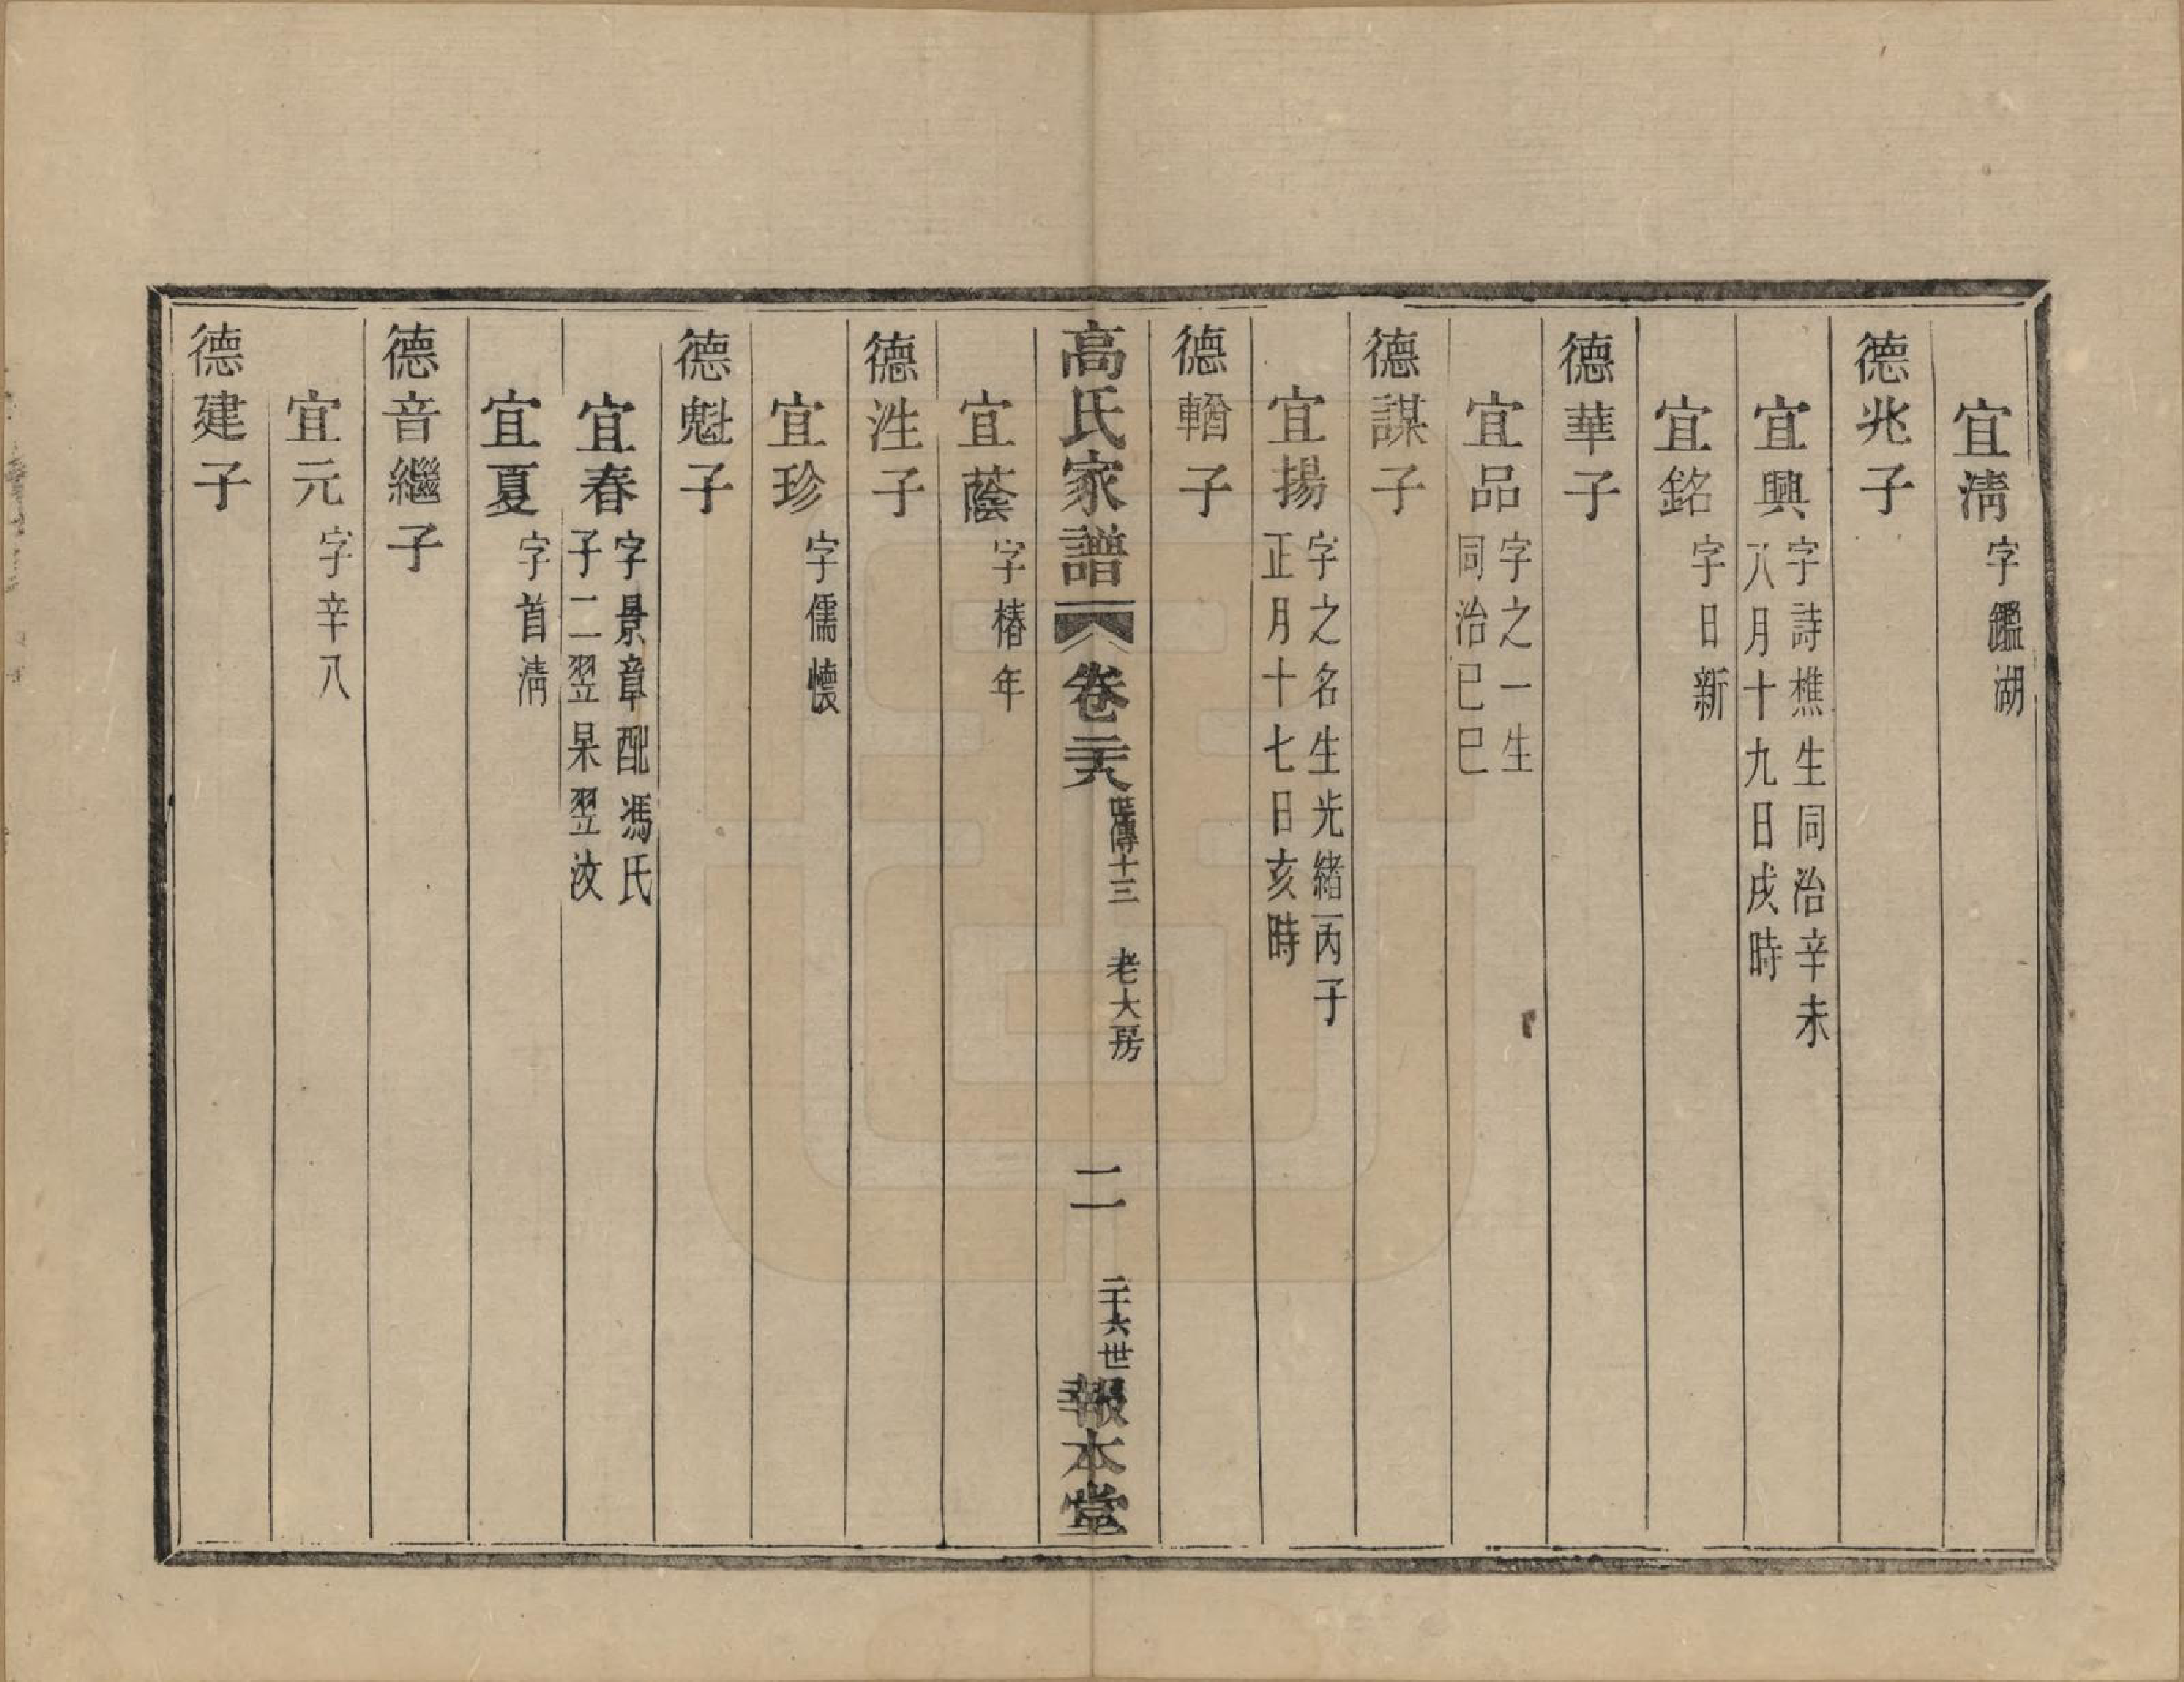 宜淸 字鑑湖
德兆子
宜興 字詩樵生同治辛未
八月十九日戌時
宜銘 字日新
德華子
宜品 字之一生
同治已巳
德謀子
宜揚 字之名生光緒丙子
正月十七日亥時
德輶子
高氏家譜 卷二十八 世傳十三 老大房 二 二十六世 報本堂
宜蔭 字椿年
德泩子
宜珍 字儒懷
德魁子
宜春 字景章配馮氏
子二翌杲翌汶
宜夏 字首淸
德音繼子
宜元 字辛八
德建子